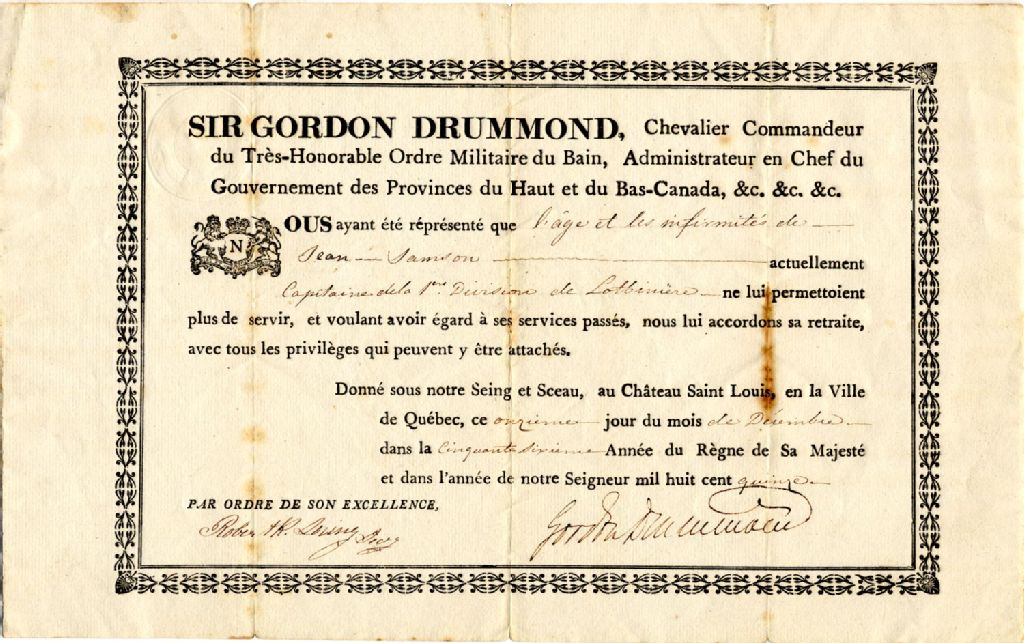 SIR GORDON DRUMMOND, Chevalier Commandeur
du Très-Honorable Ordre Militaire du Bain, Administrateur en Chef du
Gouvernement des Provinces du Haut et du Bas-Canada, &c. &c. &c.
NOUS ayant été réprésenté que l'âge et les infirmités de
Jean Samson actuellement
Capitaine de la 1ere Division de Lotbinière ne lui permettoient
plus de servir, et voulant avoir égard à ses services passés, nous lui accordons sa retraite,
avec tous les privilèges qui peuvent y être attachés.
Donné sous notre Seing et Sceau, au Château Saint Louis, en la Ville
de Québec, ce onzieme jour du mois de Décembre
dans la Cinquante sixieme Année du Règne de Sa Majesté
et dans l'année de notre Seigneur mil huit cent quinze
PAR ORDRE DE SON EXCELLENCE,
Robert R. Loring Secy
Gordon Drummond